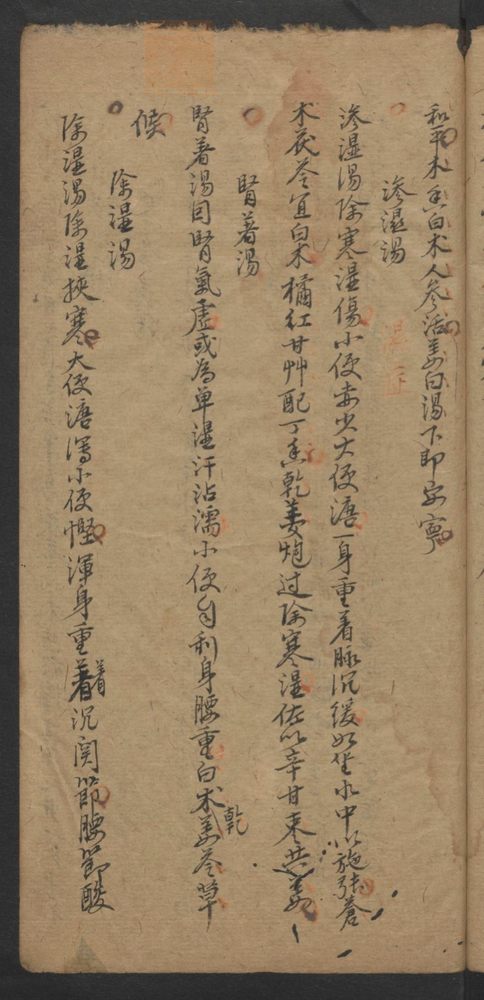 和平木香白术人参活姜白湯下即安寧
滲濕湯
滲濕湯除寒濕傷小便赤少大便溏一身重着脉沉缓如坐水中以施張蒼
术茯苓宜白术橘红甘艸配丁香乾姜炮过除寒濕佐以辛甘枣共姜
腎着湯
腎着湯因腎氣虚或為单濕汗沾濡小便自利身腰重白术乾姜苓草
候
除濕湯
除濕湯除濕挾寒大便溏瀉小便慳渾身重着着沉関節腰節酸